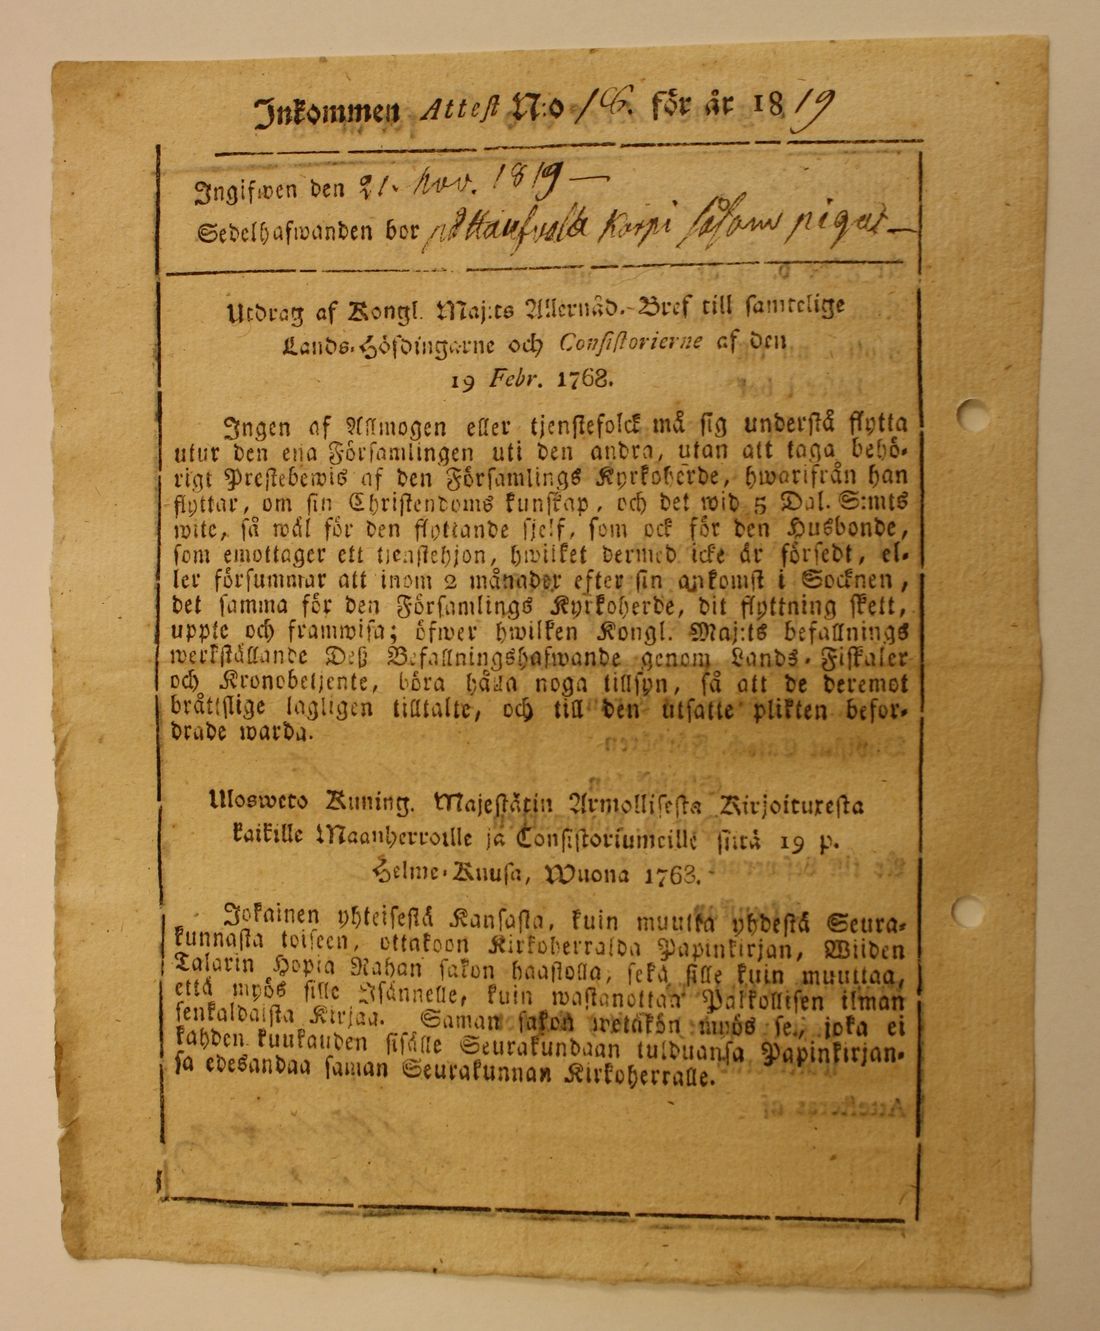 Inkommen Attest N:o 16. för år 1819
Ingifwen den 21. Nov. 1819 —
Sedelhafwanden bor på Korpi såsom piga —
Utdrag af Kongl. Maj:ts Allernåd. Bref till samtelige
Lands-Höfdingarne och Consistorierne af den
19 Febr. 1768.
Ingen af Allmogen eller tjenstefolck må sig understå flytta
utur den ena Församlingen uti den andra, utan att taga behö-
rigt Prestebewis af den Församlings Kyrkoherde, hwarifrån han
flyttar, om sin Christendoms kunskap, och det wid 5 Dal. S:mts
wite, så wäl för den flyttande sjelf, som ock för den Husbonde,
som emottager ett tjenstehjon, hwilket dermed icke är försedt, el-
ler försummar att inom 2 månader efter sin ankomst i Socknen,
det samma för den Församlings Kyrkoherde, dit flyttning skett,
uppte och framwisa; öfwer hwilken Kongl. Maj:ts befallnings
werkställande Deß Befallningshafwande genom Lands-Fiskaler
och Kronobetjente, böra hålla noga tillsyn, så att de deremot
bråttslige lagligen tilltalte, och till den utsatte plikten befor-
drade warda.
Ulosweto Kuning. Majestätin Armollisesta Kirjoituxesta
kaikille Maanherroille ja Consistoriumeille siitä 19 p.
Helme-Kuusa, Wuona 1763.
Jokainen yhteisestä Kansasta, kuin muutta yhdestä Seura-
kunnasta toiseen, ottakoon Kirkoherralda Papinkirjan, Wiiden
Talarin Hopia Rahan sakon haastolla, sekä sille kuin muuttaa,
että myös sille Isännelle, kuin wastanottaa Palkollisen ilman
senkaldaista Kirjaa. Saman sakon wetäkön myös se, joka ei
kahden kuukauden sisälle Seurakundaan tulduansa Papinkirjan-
sa edesandaa saman Seurakunnan Kirkoherralle.